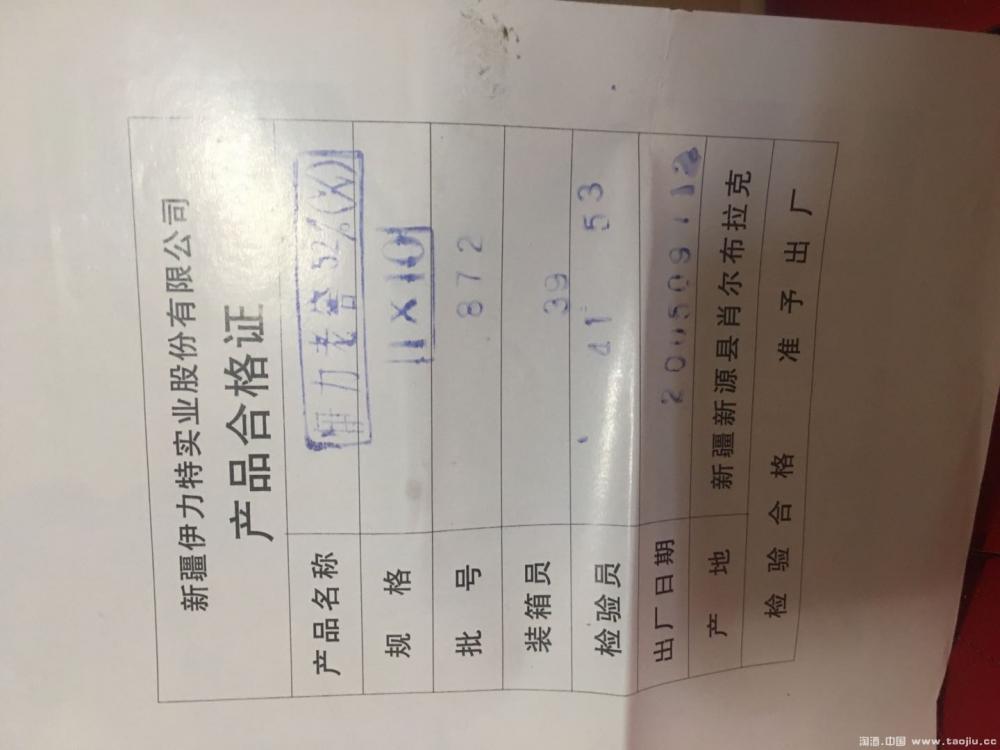 新疆伊力特实业股份有限公司
产品合格证
产品名称 伊力老窖52%(X)
规 格 1X10
批 号 872
装箱员 39
检验员 41 53
出厂日期
产 地 新疆新源县肖尔布拉克
检 验 合 格 准 予 出 厂
淘酒.中国 www.taojiu.cc